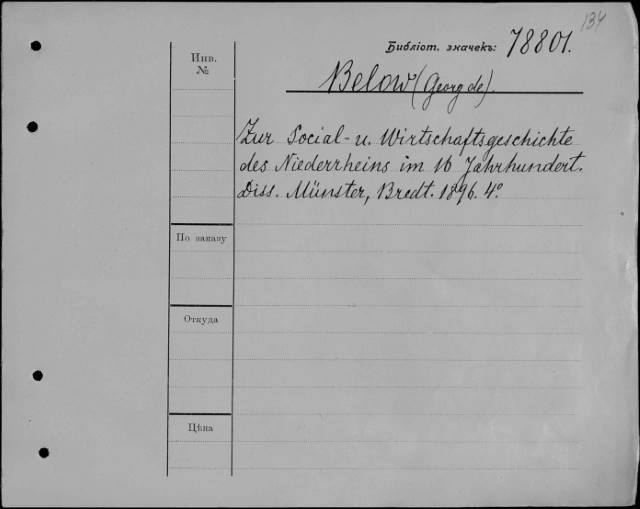 134
Библіот. значекъ: 78801.
Инв.
№
Below (Georg de).
Zur Social- u. Wirtschaftsgeschichte
des Niederrheins im 16 Jahrhundert.
Diss. Münster, Bredt. 1896. 4°.
По заказу
Откуда
Цѣна